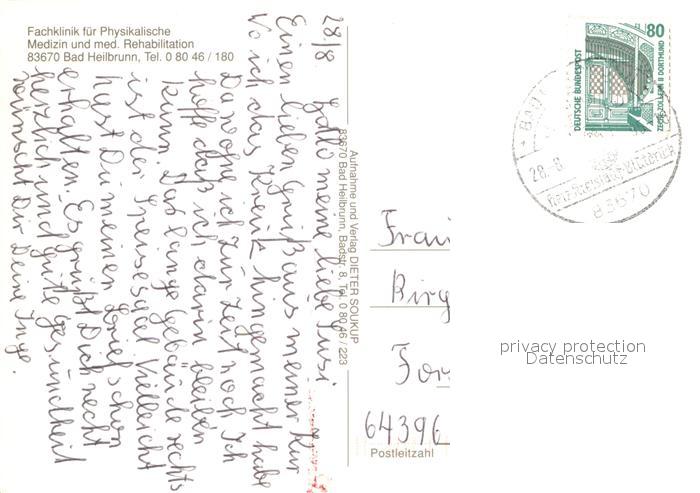 Fachklinik für Physikalische
Medizin und med. Rehabilitation
83670 Bad Heilbrunn, Tel. 0 80 46 / 180
28/8 Hallo meine liebe Susi
Einen lieben Gruß aus meiner Kur
Wo ich das Kreuz hingemacht habe
Da wohne ich zur Zeit noch Ich
hoffe daß ich darin bleiben
kann. Das lange Gebäude rechts
ist der Speisesaal Vielleicht
hast Du meinen Brief schon
erhalten. Es grüßt Dich recht
herzlich und gute Gesundheit
wünscht Dir Deine Inge.
Aufnahme und Verlag DIETER SOUKUP
83670 Bad Heilbrunn, Badstr. 8, Tel. 0 80 46 / 223
DEUTSCHE BUNDESPOST
80
ZECHE ZOLLERN II DORTMUND
BAD
28.-8.
83670
Frau
Birg
For
64396
Postleitzahl
privacy protection
Datenschutz